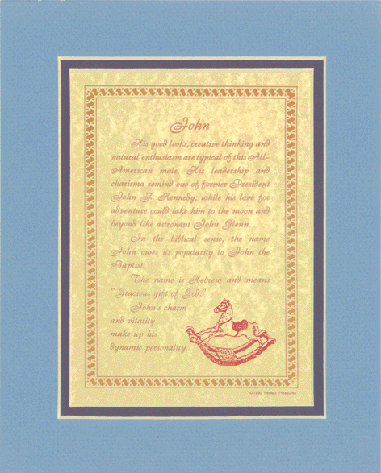 John
His good looks, creative thinking and
natural enthusiasm are typical of this All-
American male. His leadership and
charisma remind one of former President
John F. Kennedy, while his love for
adventure could take him to the moon and
beyond like astronaut John Glenn.
In the biblical sense, the name
John owes its popularity to John the
Baptist.
The name is Hebrew and means
"Gracious gift of God".
John's charm
and vitality
make up his
dynamic personality.